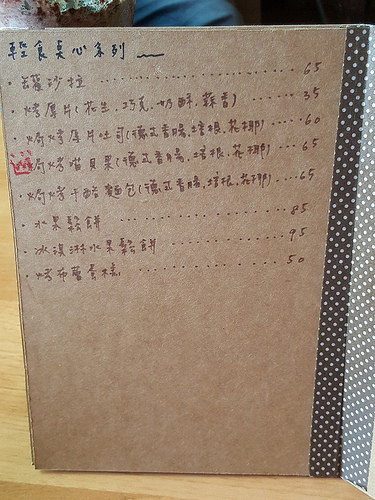 輕食點心系列
·蔬菠沙拉 ……………… 65
·烤厚片(花生.巧克.奶酥.蒜香) …… 35
·焗烤厚片吐司(德式香腸.培根.花椰) …… 60
焗烤貓貝果(德式香腸.培根.花椰) …… 65
·焗烤干酪麵包(德式香腸.培根.花椰) …… 65
·水果鬆餅 ……………… 85
·冰淇淋水果鬆餅 ……………… 95
·烤布蕾蛋糕 ……………… 50